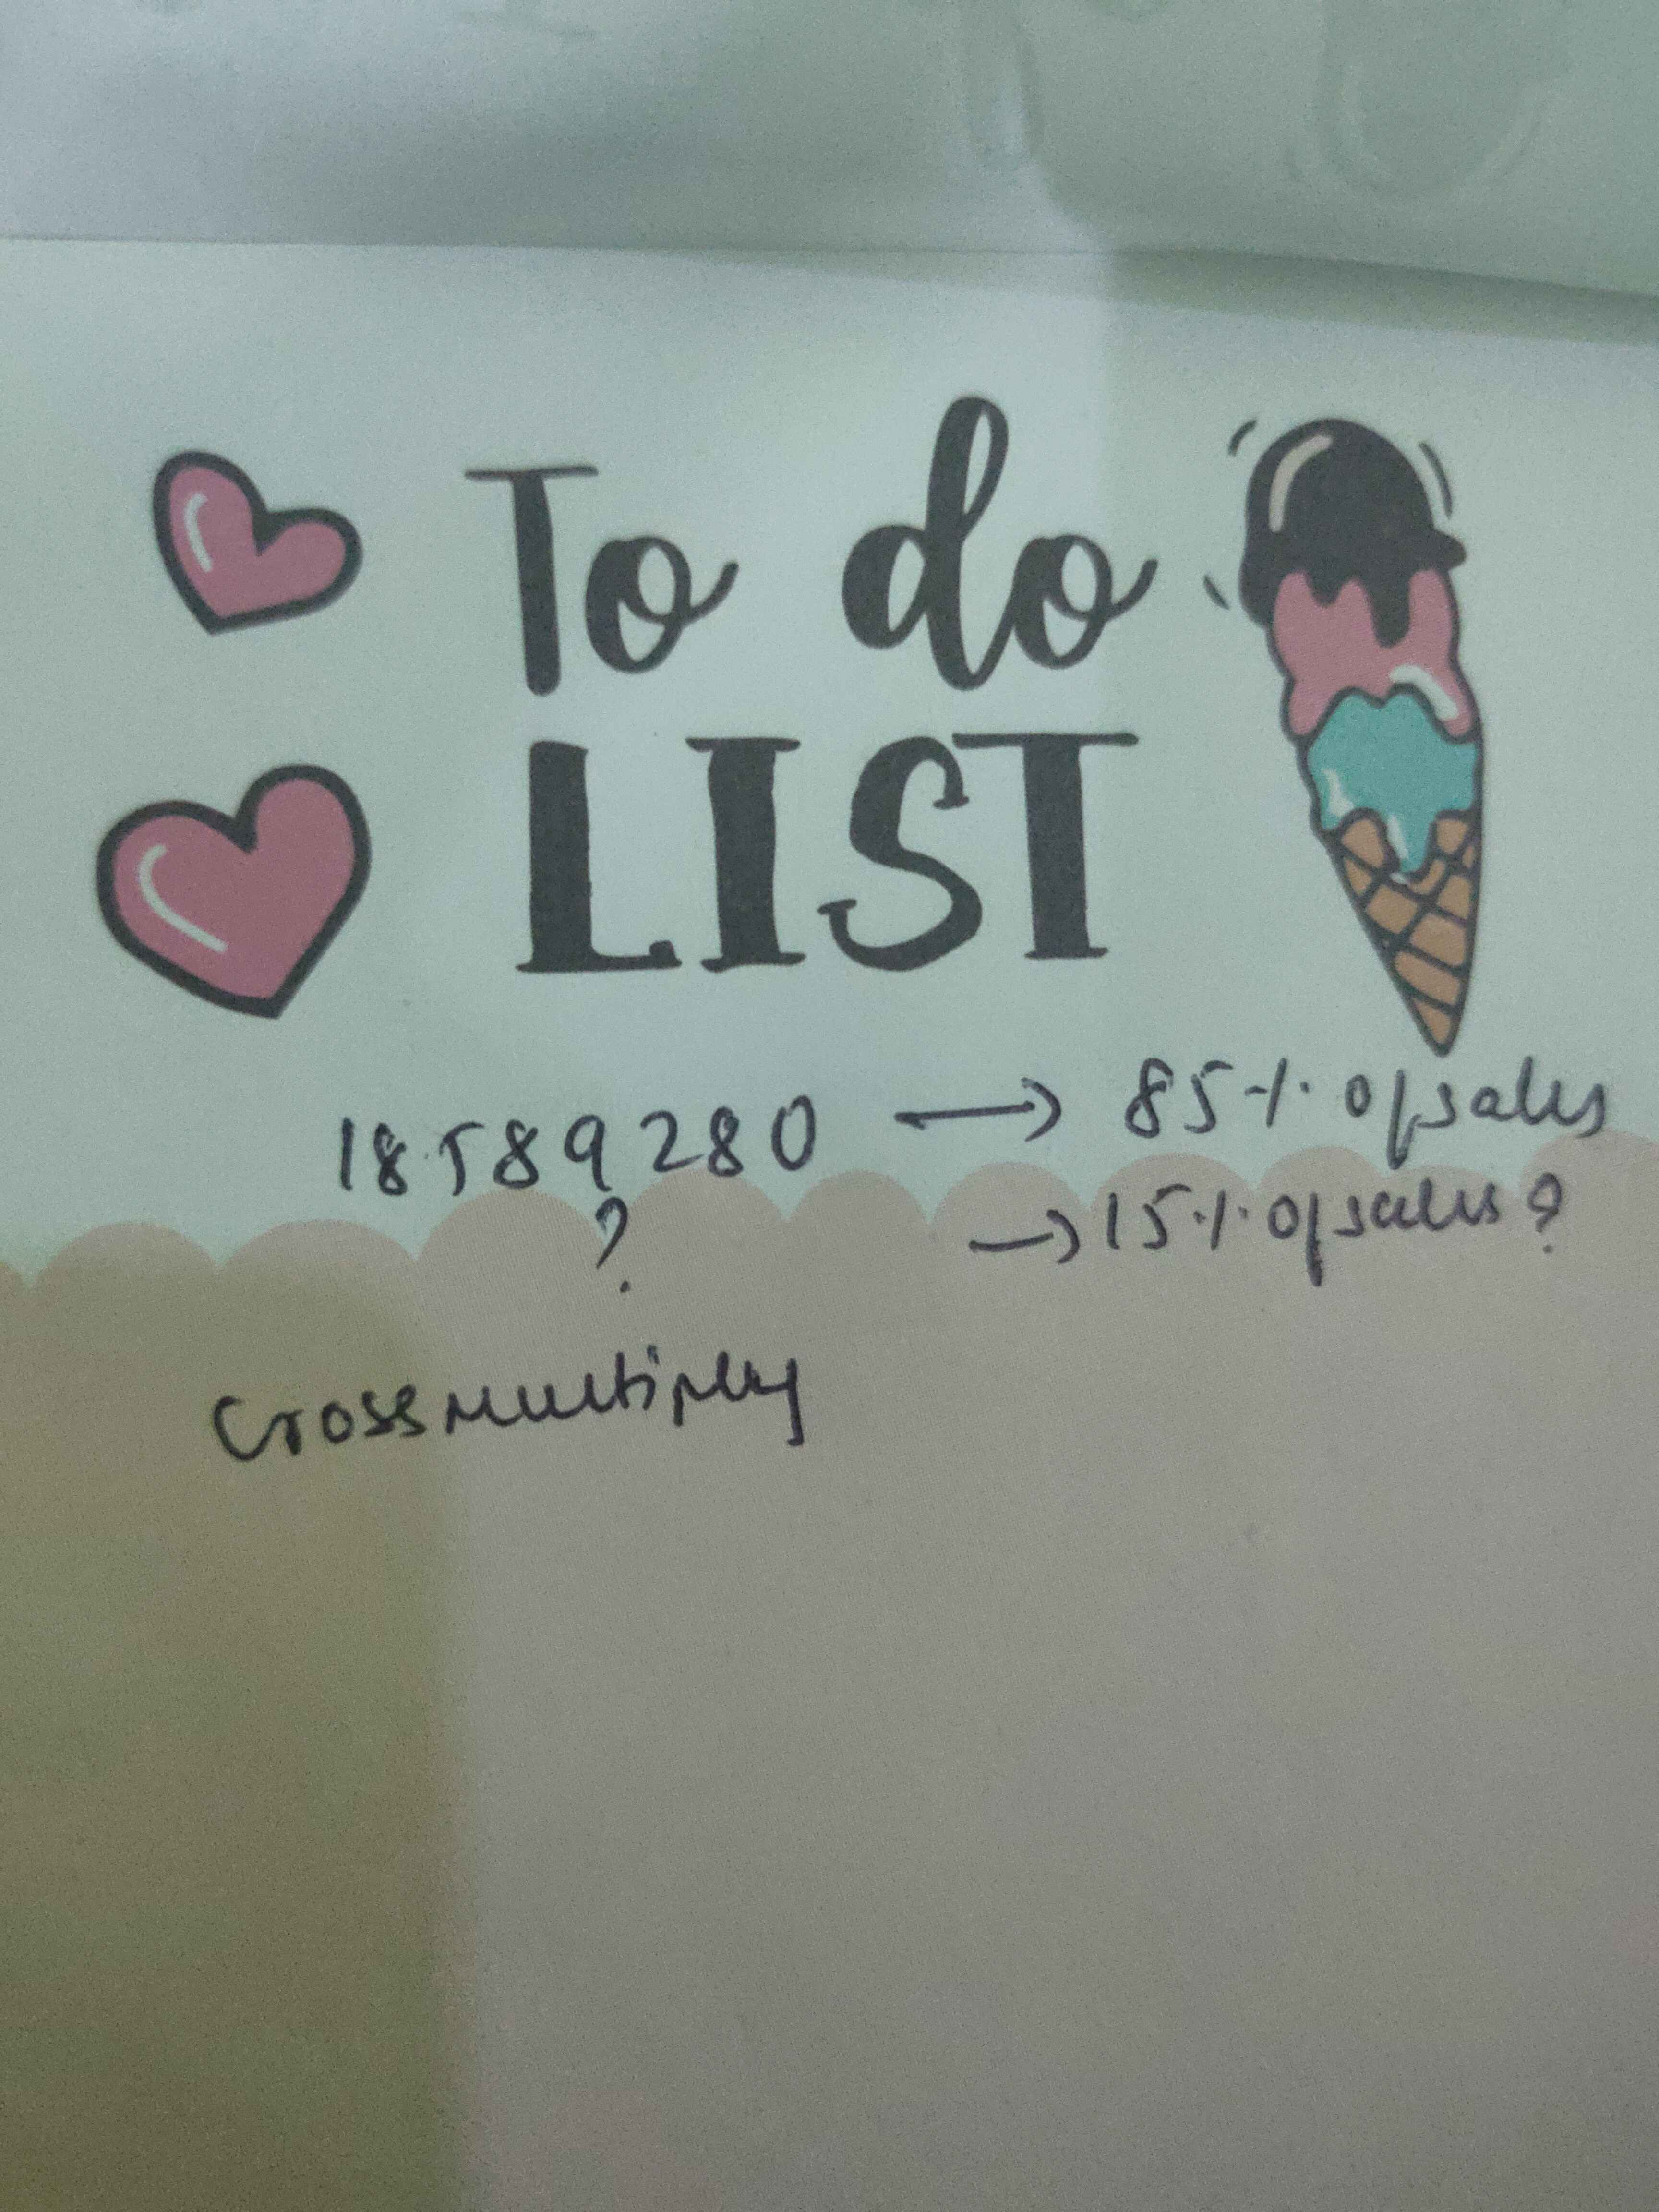 To do
LIST
18589280 → 85% of sales
? → 15% of sales?
Cross multiply